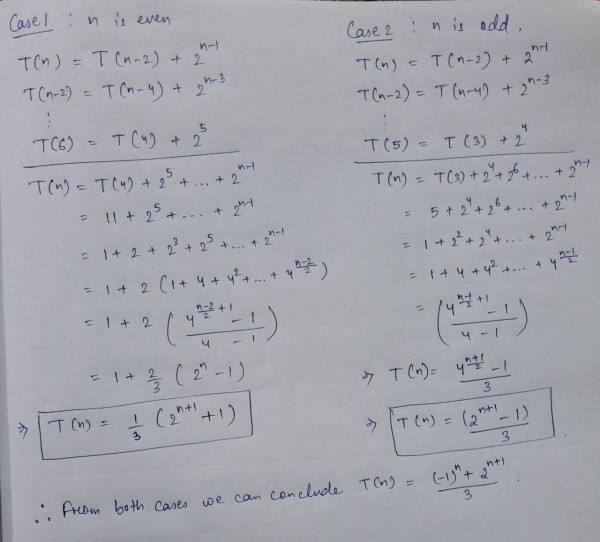 Case 1 : n is even
T(n) = T(n-2) + 2^{n-1}
T(n-2) = T(n-4) + 2^{n-3}
⋮
T(6) = T(4) + 2^5
T(n) = T(4) + 2^5 + ... + 2^{n-1}
= 11 + 2^5 + ... + 2^{n-1}
= 1 + 2 + 2^3 + 2^5 + ... + 2^{n-1}
= 1 + 2 (1 + 4 + 4^2 + ... + 4^{\frac{n-2}{2}})
= 1 + 2 \left( \frac{4^{\frac{n-2}{2}+1} - 1}{4 - 1} \right)
= 1 + \frac{2}{3} (2^n - 1)
⇒ T(n) = \frac{1}{3} (2^{n+1} + 1)
Case 2 : n is odd.
T(n) = T(n-2) + 2^{n-1}
T(n-2) = T(n-4) + 2^{n-3}
⋮
T(5) = T(3) + 2^4
T(n) = T(3) + 2^4 + 2^6 + ... + 2^{n-1}
= 5 + 2^4 + 2^6 + ... + 2^{n-1}
= 1 + 2^2 + 2^4 + ... + 2^{n-1}
= 1 + 4 + 4^2 + ... + 4^{\frac{n-1}{2}}
= \left( \frac{4^{\frac{n-1}{2}+1} - 1}{4 - 1} \right)
⇒ T(n) = \frac{4^{\frac{n+1}{2}} - 1}{3}
⇒ T(n) = \frac{(2^{n+1} - 1)}{3}
∴ From both cases we can conclude T(n) = \frac{(-1)^n + 2^{n+1}}{3} .